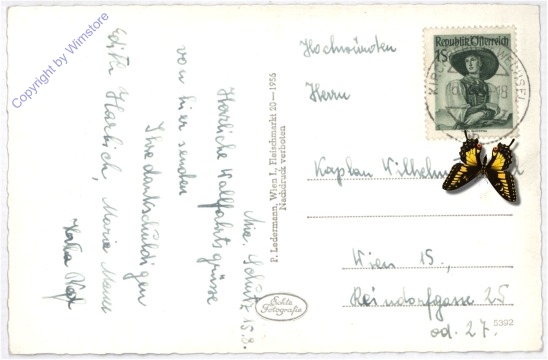 Mar. Schutz 15.8.
Herzliche Wallfahrtsgrüsse
von hier senden
Ihre dankschuldigen
Edith Harbich, Maria
P. Ledermann, Wien I., Fleischmarkt 20—1956
Nachdruck verboten
Echte
Fotografie
Hochwürden
Herrn
Kaplan Wilhelm
Wien 15.,
Reindorfgasse 25
od. 27.
5392
Republik Österreich
1S
KIRCHBERG WECHSEL
18
Copyright by Wimstore